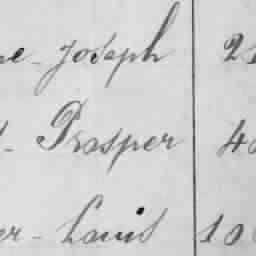 ne - Joseph 2
- Prosper 40
er - Louis 10